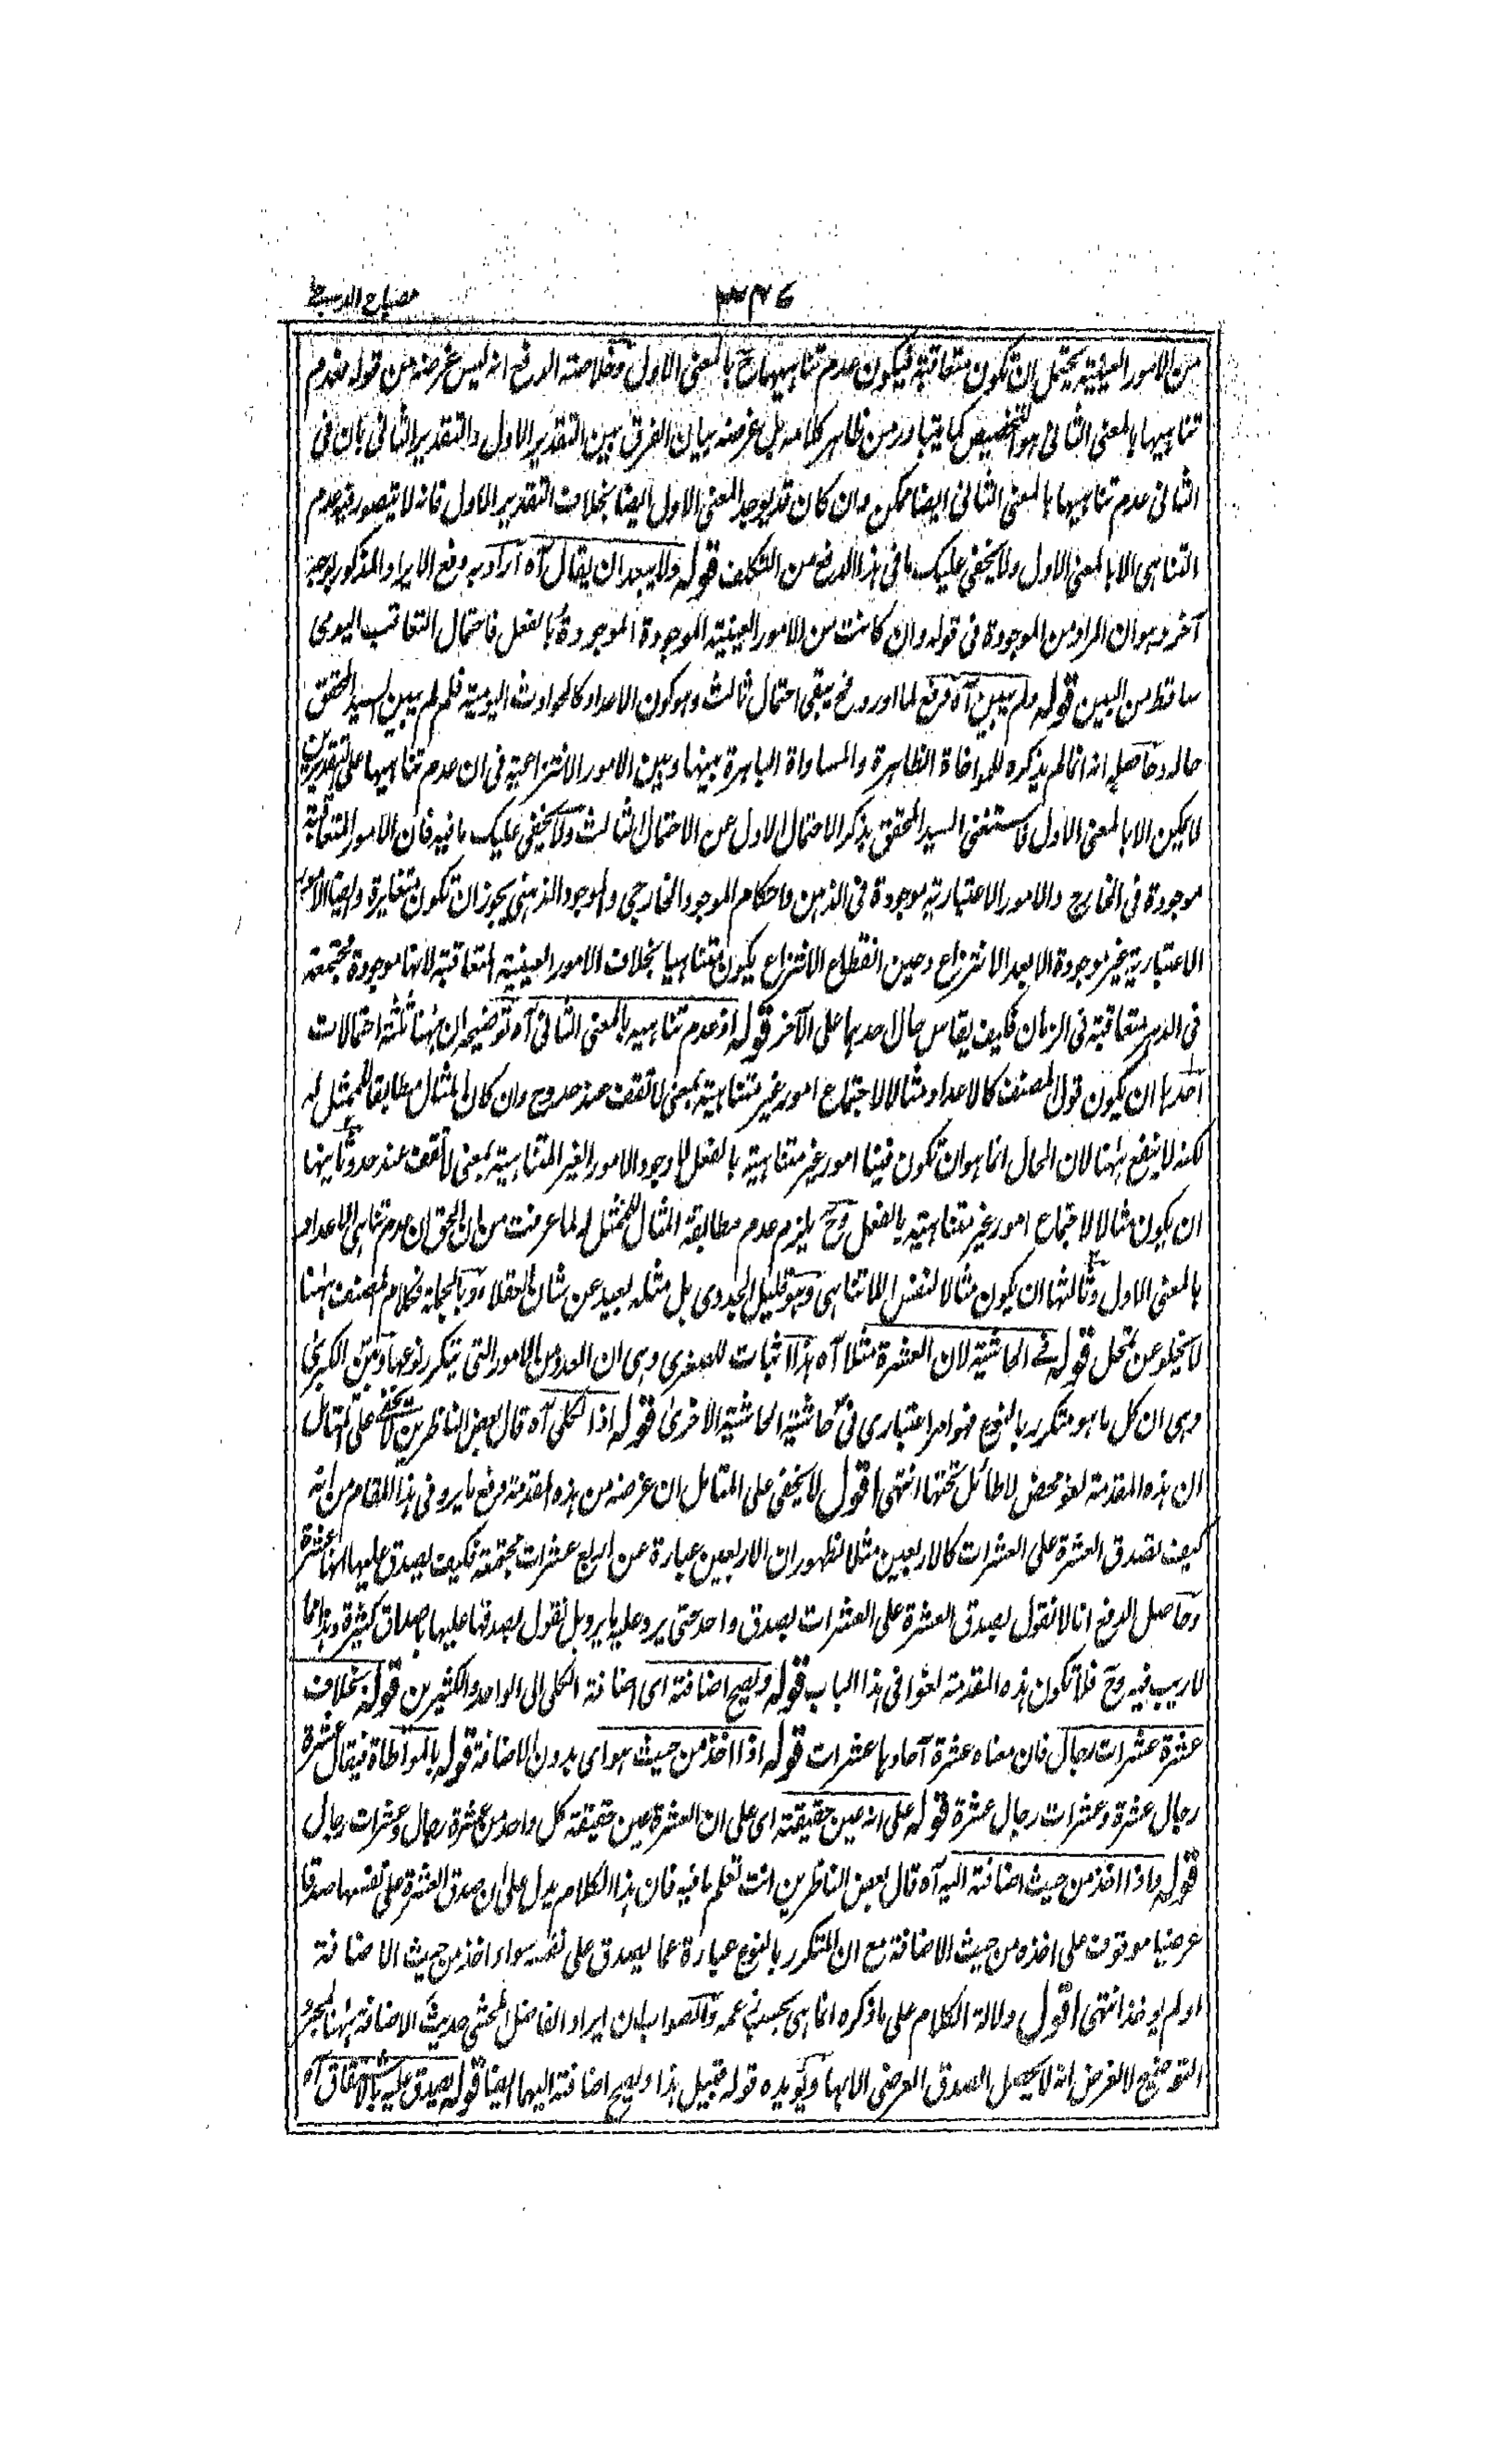 مصباح الدجى
من الامور العينية يحتمل ان تكون متعاقبة فيكون عدم تناهيها ح بالمعنى الاول وخلاصة الدفع انه ليس غرضه من قوله فعدم
تناهيها بالمعنى الثانى هو التخصيص كما يتبادر من ظاهر كلامه بل غرضه بيان الفرق بين التقدير الاول والتقدير الثانى بان فى
الثانى عدم تناهيها بالمعنى الثانى ايضا ممكن وان كان قد يوجد المعنى الاول ايضا بخلاف التقدير الاول فانه لا يتصور فيه عدم
التناهى الا بالمعنى الاول ولا يخفى عليك ما فى هذا الدفع من التكلف قوله ولا يبعد ان يقال آه اراد به دفع الايراد المذكور بوجه
آخر وهو ان المراد من الموجودة فى قوله وان كانت من الامور العينية الموجودة الموجودة بالفعل فاحتمال التعاقب اليومى
ساقط من البين قوله ولم يبين آه دفع لما اورد من انه ح يبقى احتمال ثالث وهو كون الاعداد كالحوادث اليومية فلم لم يبين السيد المحقق
حاله وحاصله انه انما لم يذكره للموافاة الظاهرة والمساواة الباهرة بينها وبين الامور الانتزاعية فى ان عدم تناهيها على التقديرين
لا يمكن الا بالمعنى الاول فاستغنى السيد المحقق بذكر الاحتمال الاول عن الاحتمال الثالث ولا يخفى عليك ما فيه فان الامور المتعاقبة
موجودة فى الخارج والامور الاعتبارية موجودة فى الذهن واحكام الموجود الخارجى والموجود الذهنى يجوز ان تكون متغايرة وايضا الامور
الاعتبارية غير موجودة الا بعد الانتزاع وحين انقطاع الانتزاع يكون متناهيا بخلاف الامور العينية المتعاقبة لانها موجودة مجتمعة
فى الدهر متعاقبة فى الزمان فكيف يقاس حال احدهما على الآخر قوله اذ عدم تناهيه بالمعنى الثانى آه توضيحه ان ههنا ثلثة احتمالات
احدها ان يكون قول المصنف كالاعداد مثالا لاجتماع امور غير متناهية بمعنى لا تقف عند حد وح وان كان المثال مطابقا للممثل له
لكنه لا ينفع ههنا لان المحال انما هو ان تكون فينا امور غير متناهية بالفعل لا وجود الامور الغير المتناهية بمعنى لا تقف عند حد وثانيها
ان يكون مثالا لاجتماع امور غير متناهية بالفعل وح يلزم عدم مطابقة المثال للممثل له لما عرفت من ان الحق ان عدم تناهى الاعداد
بالمعنى الاول وثالثها ان يكون مثالا لنفس اللاتناهى وهو قليل الجدوى بل مثله بعيد عن شان العقلاء وبالجملة فكلام المصنف ههنا
لا يخلو عن تمحل قوله فى الحاشية لان العشرة مثلا آه هذا اثبات للصغرى وهى ان العدد من الامور التى يتكرر نوعها وبين الكبرى
وهى ان كل ما هو متكرر بالنوع فهو امر اعتبارى فى حاشية الحاشية الاخرى قوله اذا الكلى آه قال بعض الناظرين لا يخفى على المتامل
ان هذه المقدمة لغو محض لا طائل تحتها انتهى اقول لا يخفى على المتامل ان غرضه من هذه المقدمة دفع ما يرد فى هذا المقام من انه
كيف تصدق العشرة على العشرات كالاربعين مثلا لظهور ان الاربعين عبارة عن اربع عشرات مجتمعة فكيف يصدق عليها انها عشرة
وحاصل الدفع انا لا نقول بصدق العشرة على العشرات بصدق واحد حتى يرد عليه ما يرد بل نقول بصدقها عليها باصداق كثيرة وهذا مما
لا ريب فيه وح فلا تكون هذه المقدمة لغوا فى هذا الباب قوله ويصح اضافته اى اضافة الكلى الى الواحد والكثيرين قوله بخلاف
عشرة عشرات رجال فان معناه عشرة آحادها عشرات قوله اذا اخذ من حيث هو اى بدون الاضافة قوله بالمواطاة فيقال عشرة
رجال عشرة وعشرات رجال عشرة قوله على انه عين حقيقته اى على ان العشرة عين حقيقة كل واحد من عشرة رجال وعشرات رجال
قوله واذا اخذ من حيث اضافته اليه آه قال بعض الناظرين انت تعلم ما فيه فان هذا الكلام يدل على ان صدق العشرة على نفسها صدقا
عرضيا موقوف على اخذه من حيث الاضافة مع ان المتكرر بالنوع عبارة عما يصدق على نفسه سواء اخذ من حيث الاضافة
او لم يوخذ انتهى اقول دلالة الكلام على ما ذكره انما هى بحسب زعمه والصواب ان ايراد الفاضل المحشى حديث الاضافة ههنا لمجرد
التوضيح لا لغرض انه لا يحصل الصدق العرضى الا بها ويؤيده قوله قبيل هذا ويصح اضافته اليهما ايضا قوله يصدق عليه بالاشتقاق آه